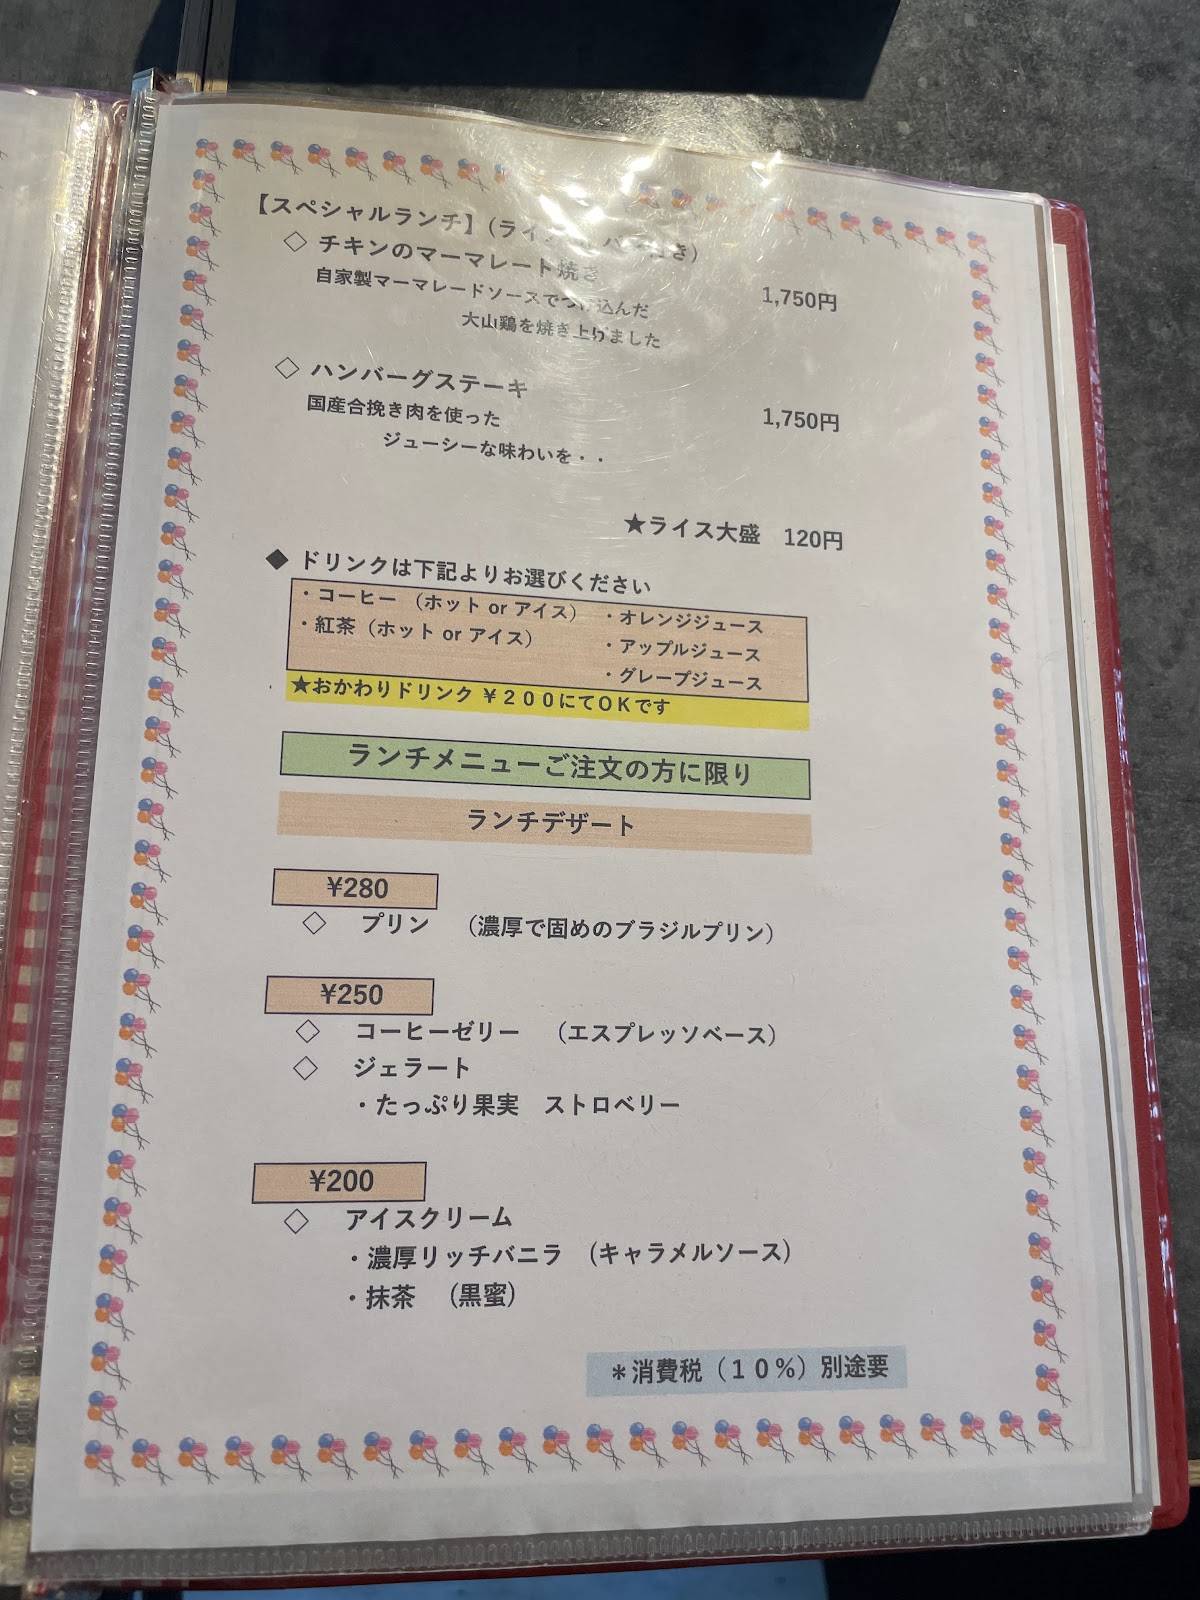 【スペシャルランチ】(ライス パン付き)
◇ チキンのマーマレード焼き
1,750円
自家製マーマレードソースでつけ込んだ
大山鶏を焼き上げました
◇ ハンバーグステーキ
1,750円
国産合挽き肉を使った
ジューシーな味わいを・・
★ライス大盛 120円
◆ ドリンクは下記よりお選びください
・コーヒー (ホット or アイス)
・紅茶(ホット or アイス)
・オレンジジュース
・アップルジュース
・グレープジュース
★おかわりドリンク ¥200にてOKです
ランチメニューご注文の方に限り
ランチデザート
¥280
◇ プリン (濃厚で固めのブラジルプリン)
¥250
◇ コーヒーゼリー (エスプレッソベース)
◇ ジェラート
・たっぷり果実 ストロベリー
¥200
◇ アイスクリーム
・濃厚リッチバニラ (キャラメルソース)
・抹茶 (黒蜜)
＊消費税(10%)別途要